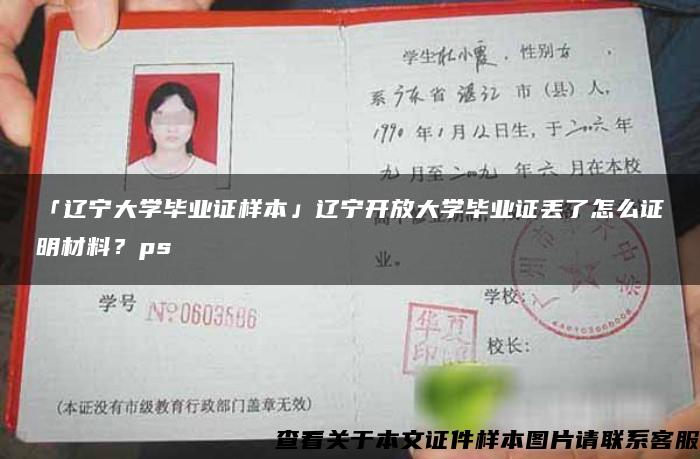 学生杜小霞，性别女，
系广东省湛江市（县）人，
1990年1月12日生，于二〇〇六年
九月至二〇〇九年六月在本校
「辽宁大学毕业证样本」辽宁开放大学毕业证丢了怎么证
明材料？ps
业。
学号 №0603586
学校：
校长：
(本证没有市级教育行政部门盖章无效)
查看关于本文证件样本图片请联系客服